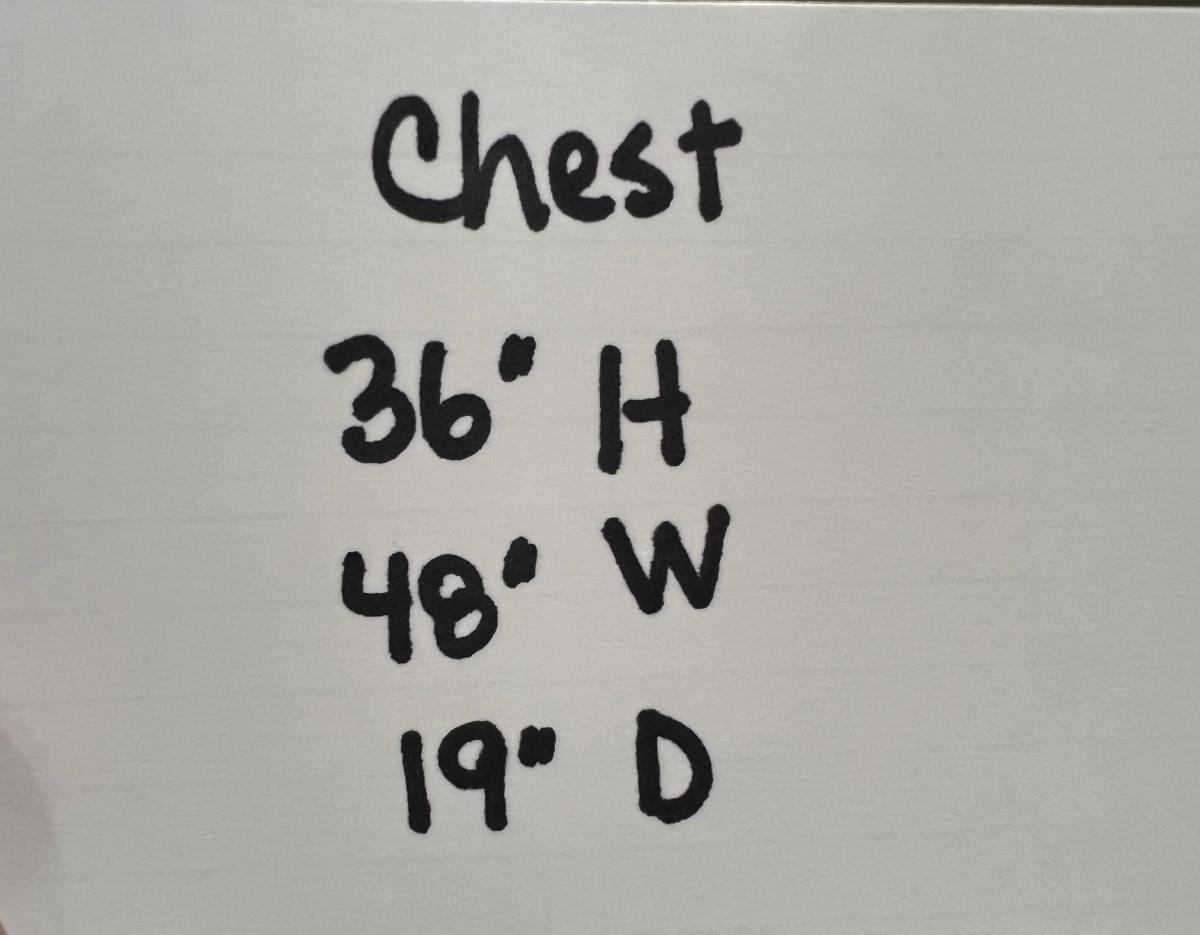 Chest
36" H
48" W
19" D